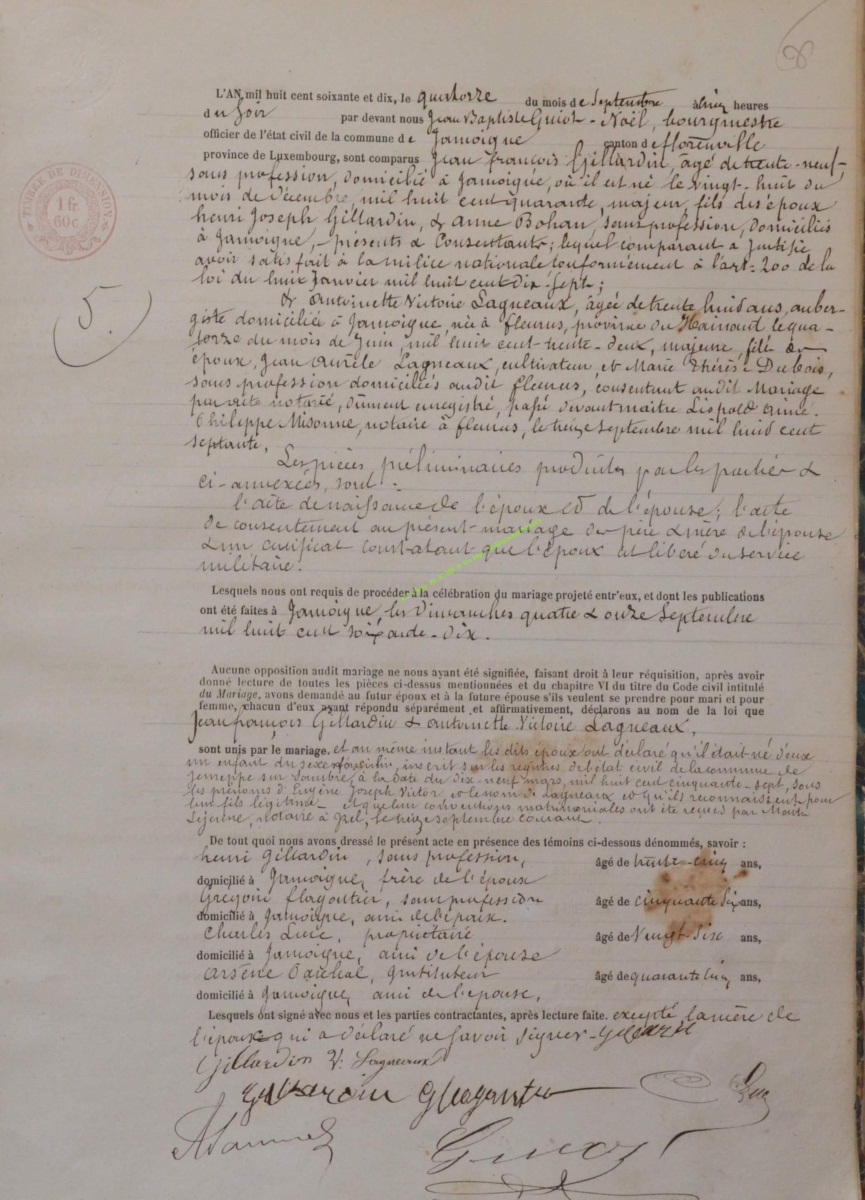 8
L'AN mil huit cent soixante et dix, le quatorze du mois de Septembre à cinq heures
du soir par devant nous Jean Baptiste Guiot-Noël, bourgmestre
officier de l'état civil de la commune de Jamoigne canton de florenville
province de Luxembourg, sont comparus Jean françois Gillardin, âgé de trente-neuf,
sans profession, domicilié à Jamoigne, où il est né le vingt-huit du
mois de Décembre, mil huit cent quarante, majeur, fils des époux
henri Joseph Gillardin, & anne Bohan, sans profession, domiciliés
à Jamoigne, présents & Consentants; lequel comparant a justifié
avoir satisfait à la milice nationale conformément à l'art. 200 de la
loi du huit Janvier mil huit cent dix-sept;
TIMBRE DE DIMENSION
1 fr
60c
5.
& antoinette Victoire Lagneaux, âgée de trente huid ans, auber-
giste domiciliée à Jamoigne, née à fleurus, province du Hainaut le qua-
torze du mois de Juin, mil huit cent trente-deux, majeure, fille des
époux, Jean aurèle Lagneaux, cultivateur, et Marie thérèse Dubois,
sans profession domiciliés audit fleurus, consentant audit Mariage
par acte notarié, dûment enregistré, passé devant maître Léopold
Philippe Misonne, notaire à fleurus, le treize septembre mil huid cent
septante.
Les pièces préliminaires produites par les parties &
ci-annexées, sont:
l'acte de naissance de l'époux et de l'épouse; l'acte
de consentement au présent mariage des père & mère de l'épouse
& un certificat constatant que l'époux est libéré du service
militaire.
Lesquels nous ont requis de procéder à la célébration du mariage projeté entr'eux, et dont les publications
ont été faites à Jamoigne, les Dimanches quatre & onze Septembre
mil huit cent soixante-dix.
Aucune opposition audit mariage ne nous ayant été signifiée, faisant droit à leur réquisition, après avoir
donné lecture de toutes les pièces ci-dessus mentionnées et du chapitre VI du titre du Code civil intitulé
du Mariage, avons demandé au futur époux et à la future épouse s'ils veulent se prendre pour mari et pour
femme, chacun d'eux ayant répondu séparément et affirmativement, déclarons au nom de la loi que
Jean françois Gillardin & antoinette Victoire Lagneaux,
sont unis par le mariage. et au même instant les dits époux ont déclaré qu'il était né d'eux
un enfant du sexe masculin, inscrit sur les registres de l'état civil de la commune de
Jemeppe sur Sambre, à la date du Dix-neuf mars, mil huit cent cinquante-sept, sous
les prénoms d'Eugène Joseph Victor et le nom de Lagneaux et qu'ils reconnaissent pour
leur fils légitime. et que leur conventions matrimoniales ont été reçues par Maître
Lejeune, notaire à Izel, le treize septembre courant.
De tout quoi nous avons dressé le présent acte en présence des témoins ci-dessous dénommés, savoir :
henri Gillardin, sans profession, âgé de trente-cinq ans,
domicilié à Jamoigne, frère de l'époux
Grégoire flagontier, sans profession âgé de cinquante six ans,
domicilié à Jamoigne, ami de l'époux.
Charles Luc, propriétaire âgé de Vingt-six ans,
domicilié à Jamoigne, ami de l'épouse
arsène instituteur âgé de quarante cinq ans,
domicilié à Jamoigne, ami de l'épouse,
Lesquels ont signé avec nous et les parties contractantes, après lecture faite. excepté la mère de
l'époux qui a déclaré ne savoir signer-
Gillardin V. Lagneaux
Gillardin
Guiot